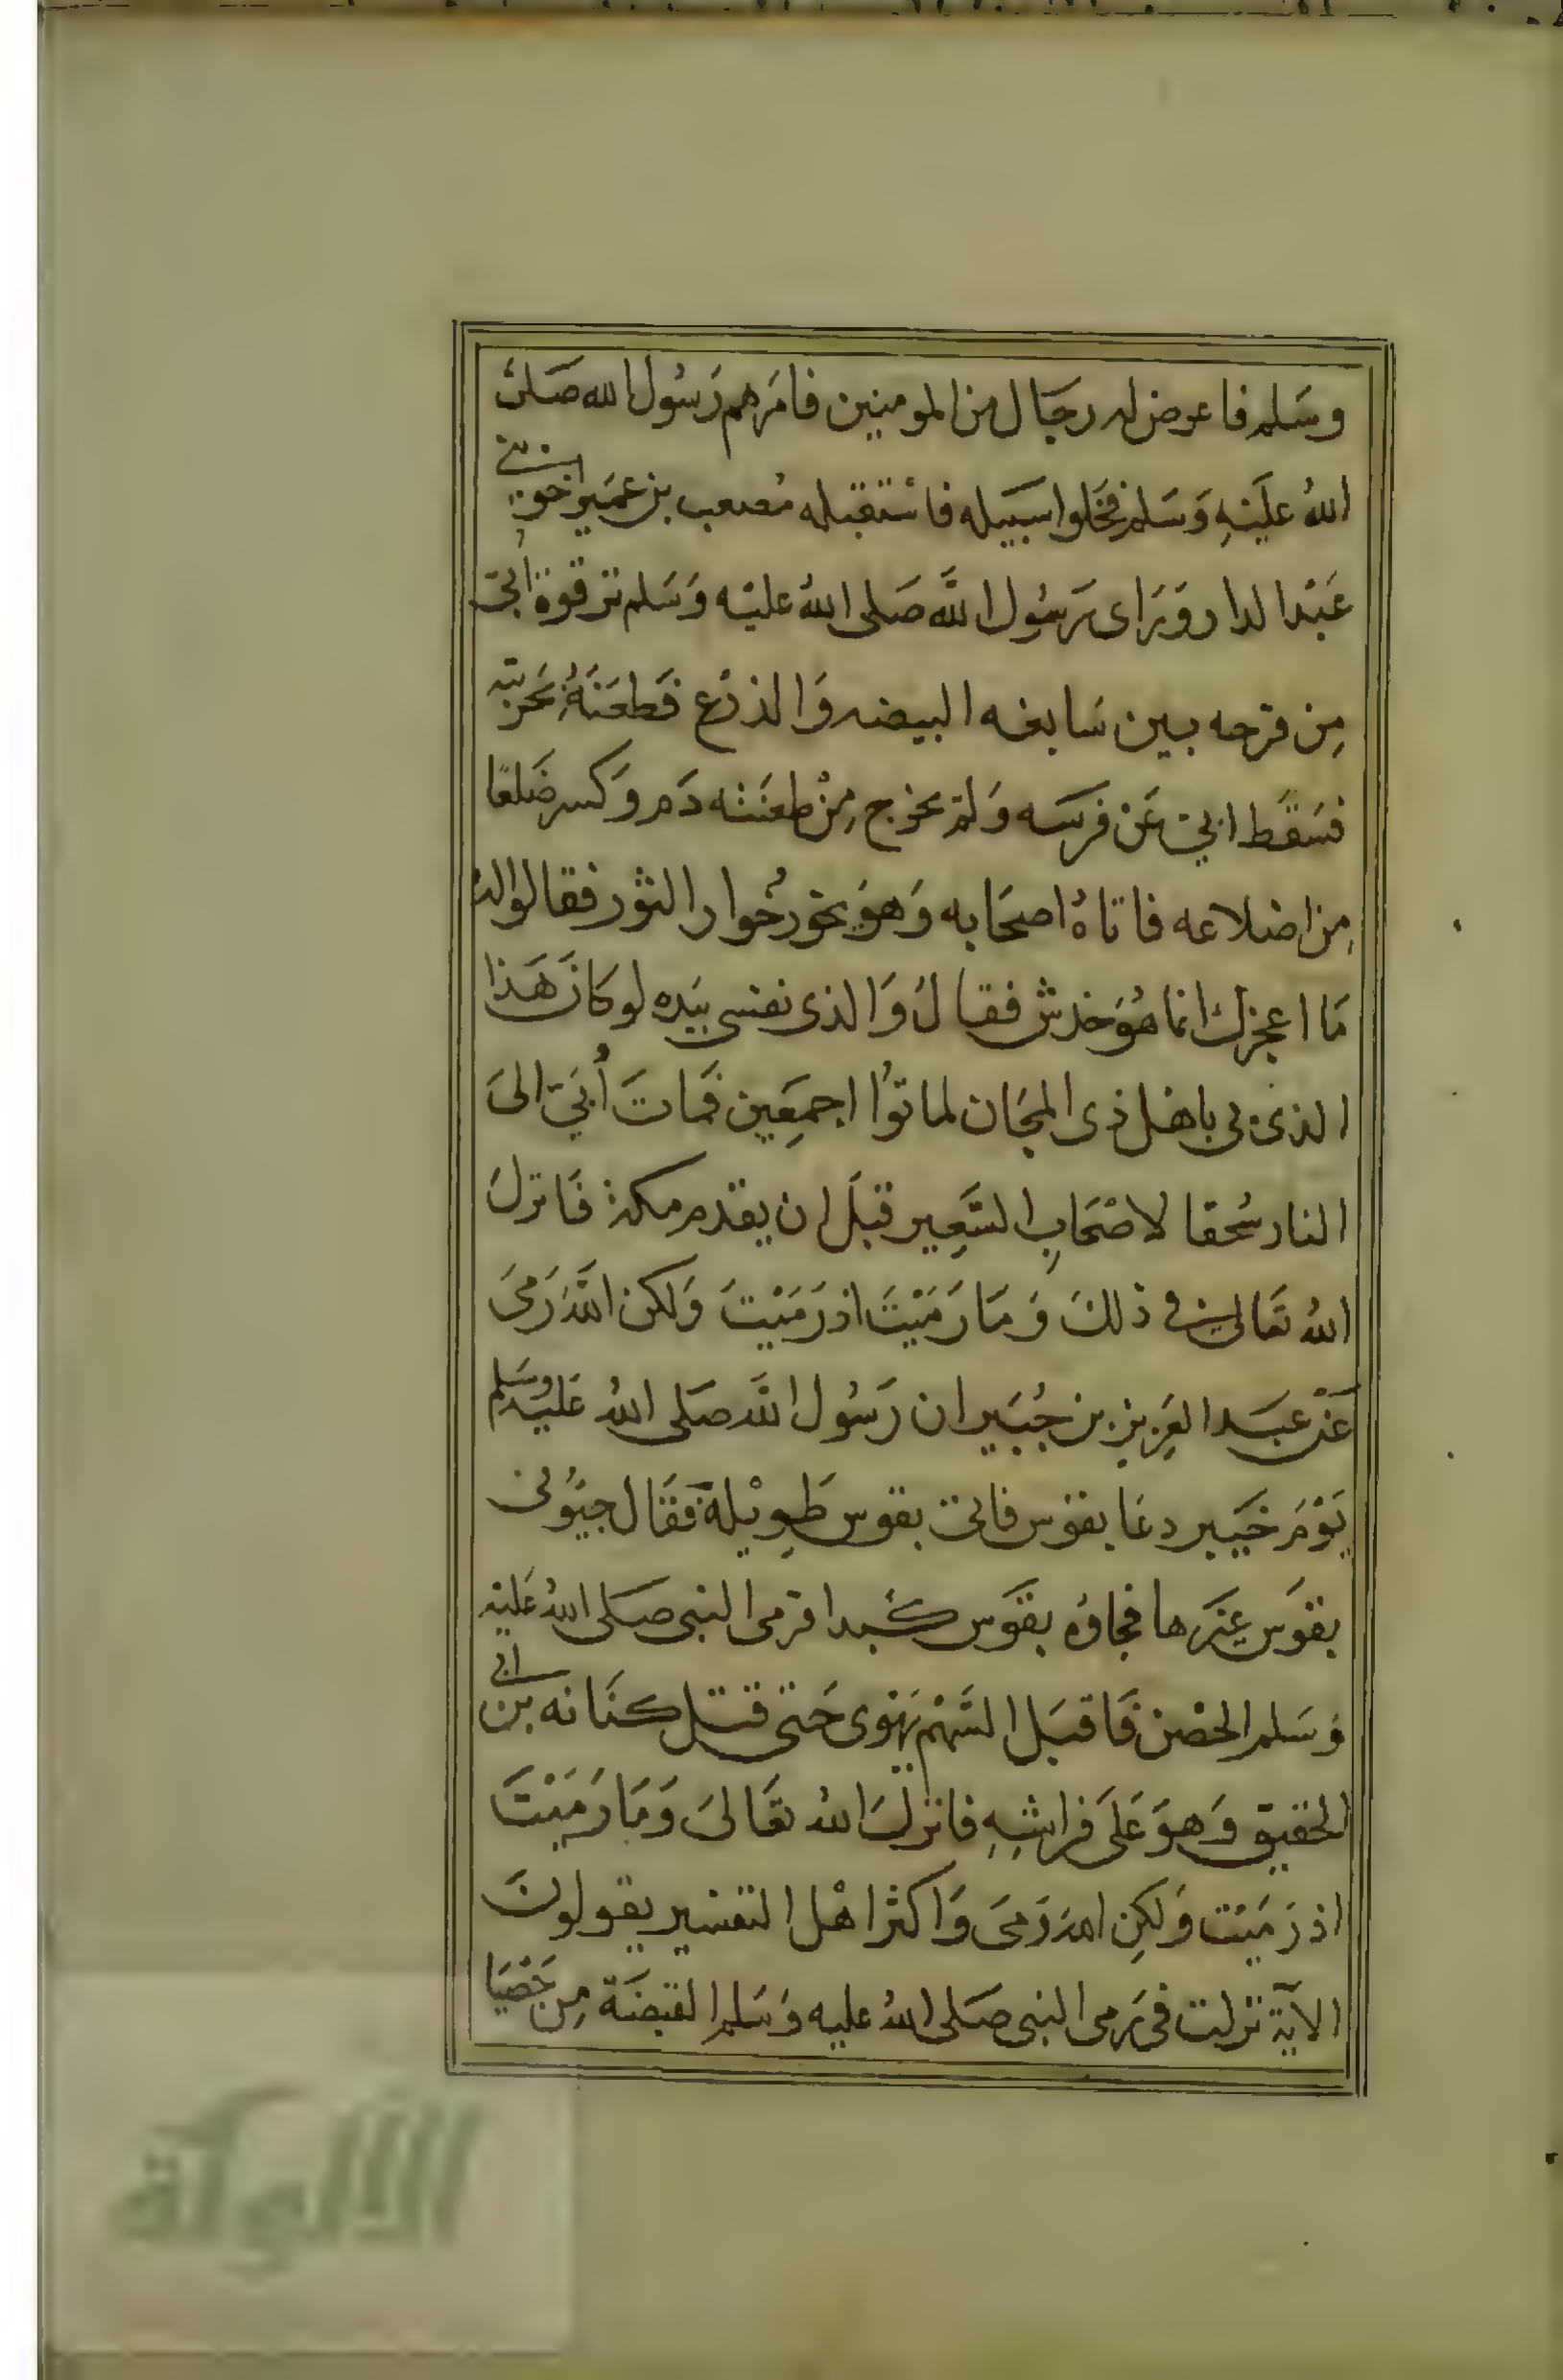 وسَلم فاعرض له رجَال من المومنين فامَرهم رَسُول الله صَلى
اللهُ عليَهِ وَسَلم فخَلوا سَبيله فاستَقبله مُصعب بن عميَر اخو بنى
عَبْد الدار وَرَاى رَسُول اللَّه صَلى اللهُ عليْه وَسَلم ترقوة أبىّ
مِن فرجه بين سَابغه البيضه وَالدرْع فَطعَنَهُ بحَربته
فسَقَط ابيّ عَنْ فرَسَه وَلمْ يخرج مِنْ طعنَته دَم وَكسر ضَلعًا
مِن اضلاعه فاتاهُ اصحَابه وَهوَ يخورُ خُوار الثوْر فقالوا له
مَا اعجزك انما هُوَ خدش فقالُ وَالذى نفسى بيَده لو كانَ هَذا
الذى بى باهل ذى المجَان لماتوُا اجمَعِين فمَاتَ أُبَيّ الىَ
النار سُحقا لاصْحَابِ السَّعِير قبلَ ان يقدم مكة فَانزلَ
اللهُ تعَالى فى ذلكَ وَمَا رَمَيْتَ اذ رَمَيْتَ وَلكن اللَّه رَمىَ
عَنْ عبَد العَزِيز بن جُبَير ان رَسُول اللَّه صَلى اللهُ عَليه وسَلم
يَوْمَ خَيبر دعَا بقوس فاتى بقوس طَوِيْلة فقَال جيئُونى
بقوَس غيَرها فجاؤه بقوَس كبدا فرمى النبى صَلى اللهُ عَليْه
وَسَلم الحصْن فَاقبَل السَّهْم يَهْوى حَتى قتل كنَانه بن ابى
الحقيق وَهوَ عَلىَ فرَاشِهِ فانزلَ اللهُ تعَالىَ وَمَا رَمَيْتَ
اذ رَمَيْت وَلكِن الله رَمىَ وَاكثر اهْل التفسير يقولونَ
الآية نزلت فى رَمى النبى صَلى اللهُ عليه وَسَلم القبضَة مِن حَصْبَا
الألوكة